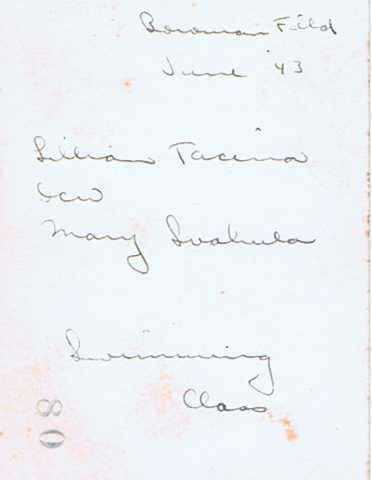 Bowman Field
June '43
Lillian Tacina
Mary Svahula
Swimming
Class
80